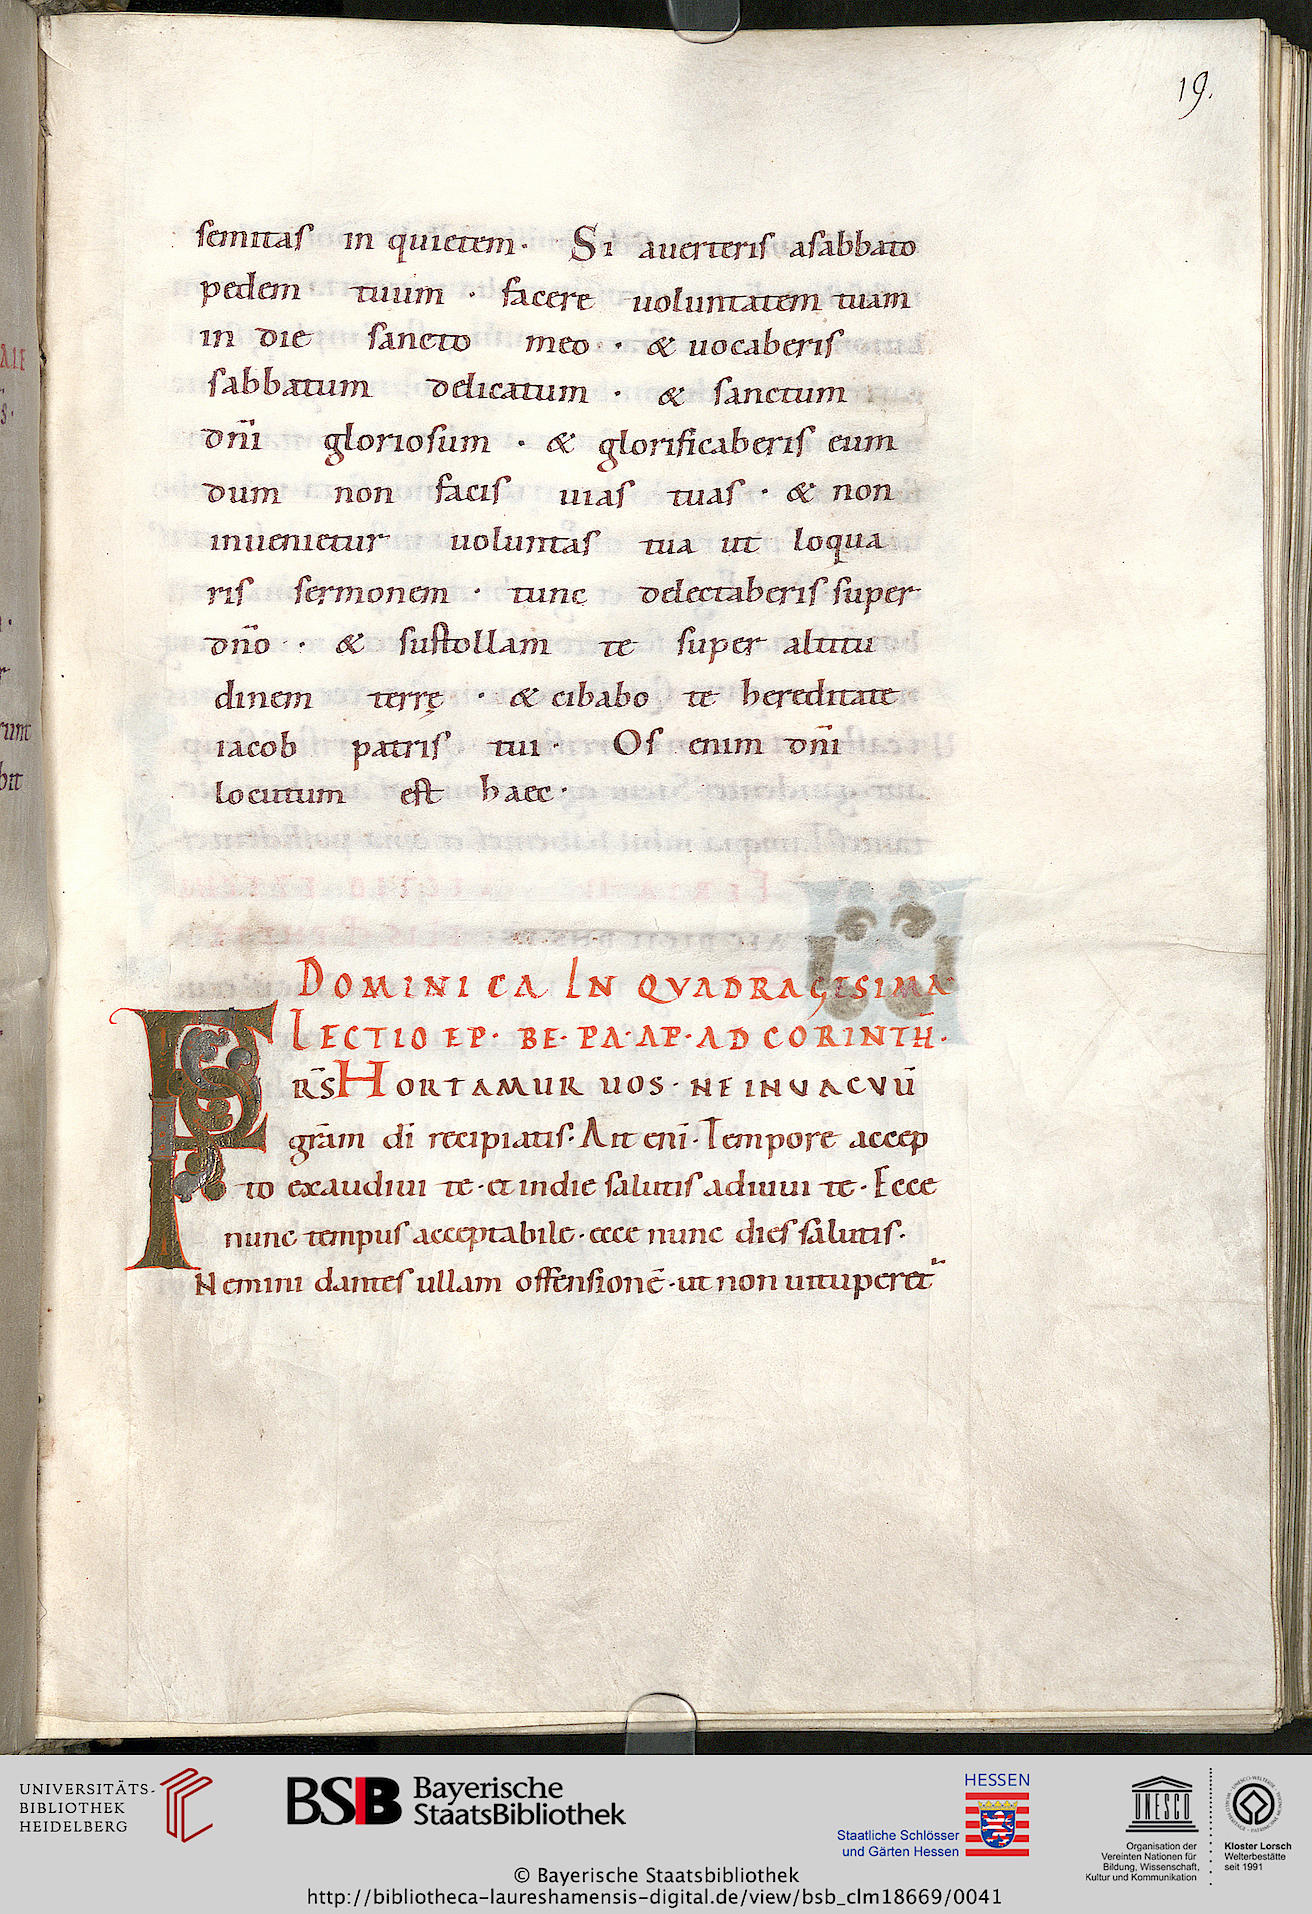 19.
semitas in quietem· Si auerteris asabbato
pedem tuum · facere uoluntatem tuam
in die sancto meo · & uocaberis
sabbatum delicatum · & sanctum
dn̄i gloriosum · & glorificaberis eum
dum non facis uias tuas · & non
inuenietur uoluntas tua ut loqua
ris sermonem · tunc delectaberis super
dn̄o · & sustollam te super altitu
dinem terrę · & cibabo te hereditate
iacob patris tui · Os enim dn̄i
locutum est haec ·
DOMINICA IN QVADRAGESIMA
LECTIO EP· BE· PA· AP· AD CORINTH̄·
F RS̄ HORTAMUR UOS· NE IN VACVŪ
gr̄am dī recipiatis· Ait eni̅· Tempore accep
to exaudiui te· et indie salutis adiuui te· Ecce
nunc tempus acceptabile· ecce nunc dies salutis·
Nemini dantes ullam offensionē· ut non uituperet᷑
UNIVERSITÄTS-
BIBLIOTHEK
HEIDELBERG
BSB Bayerische
StaatsBibliothek
HESSEN
Staatliche Schlösser
und Gärten Hessen
UNESCO
Organisation der
Vereinten Nationen für
Bildung, Wissenschaft,
Kultur und Kommunikation
Kloster Lorsch
Welterbestätte
seit 1991
© Bayerische Staatsbibliothek
http://bibliotheca-laureshamensis-digital.de/view/bsb_clm18669/0041